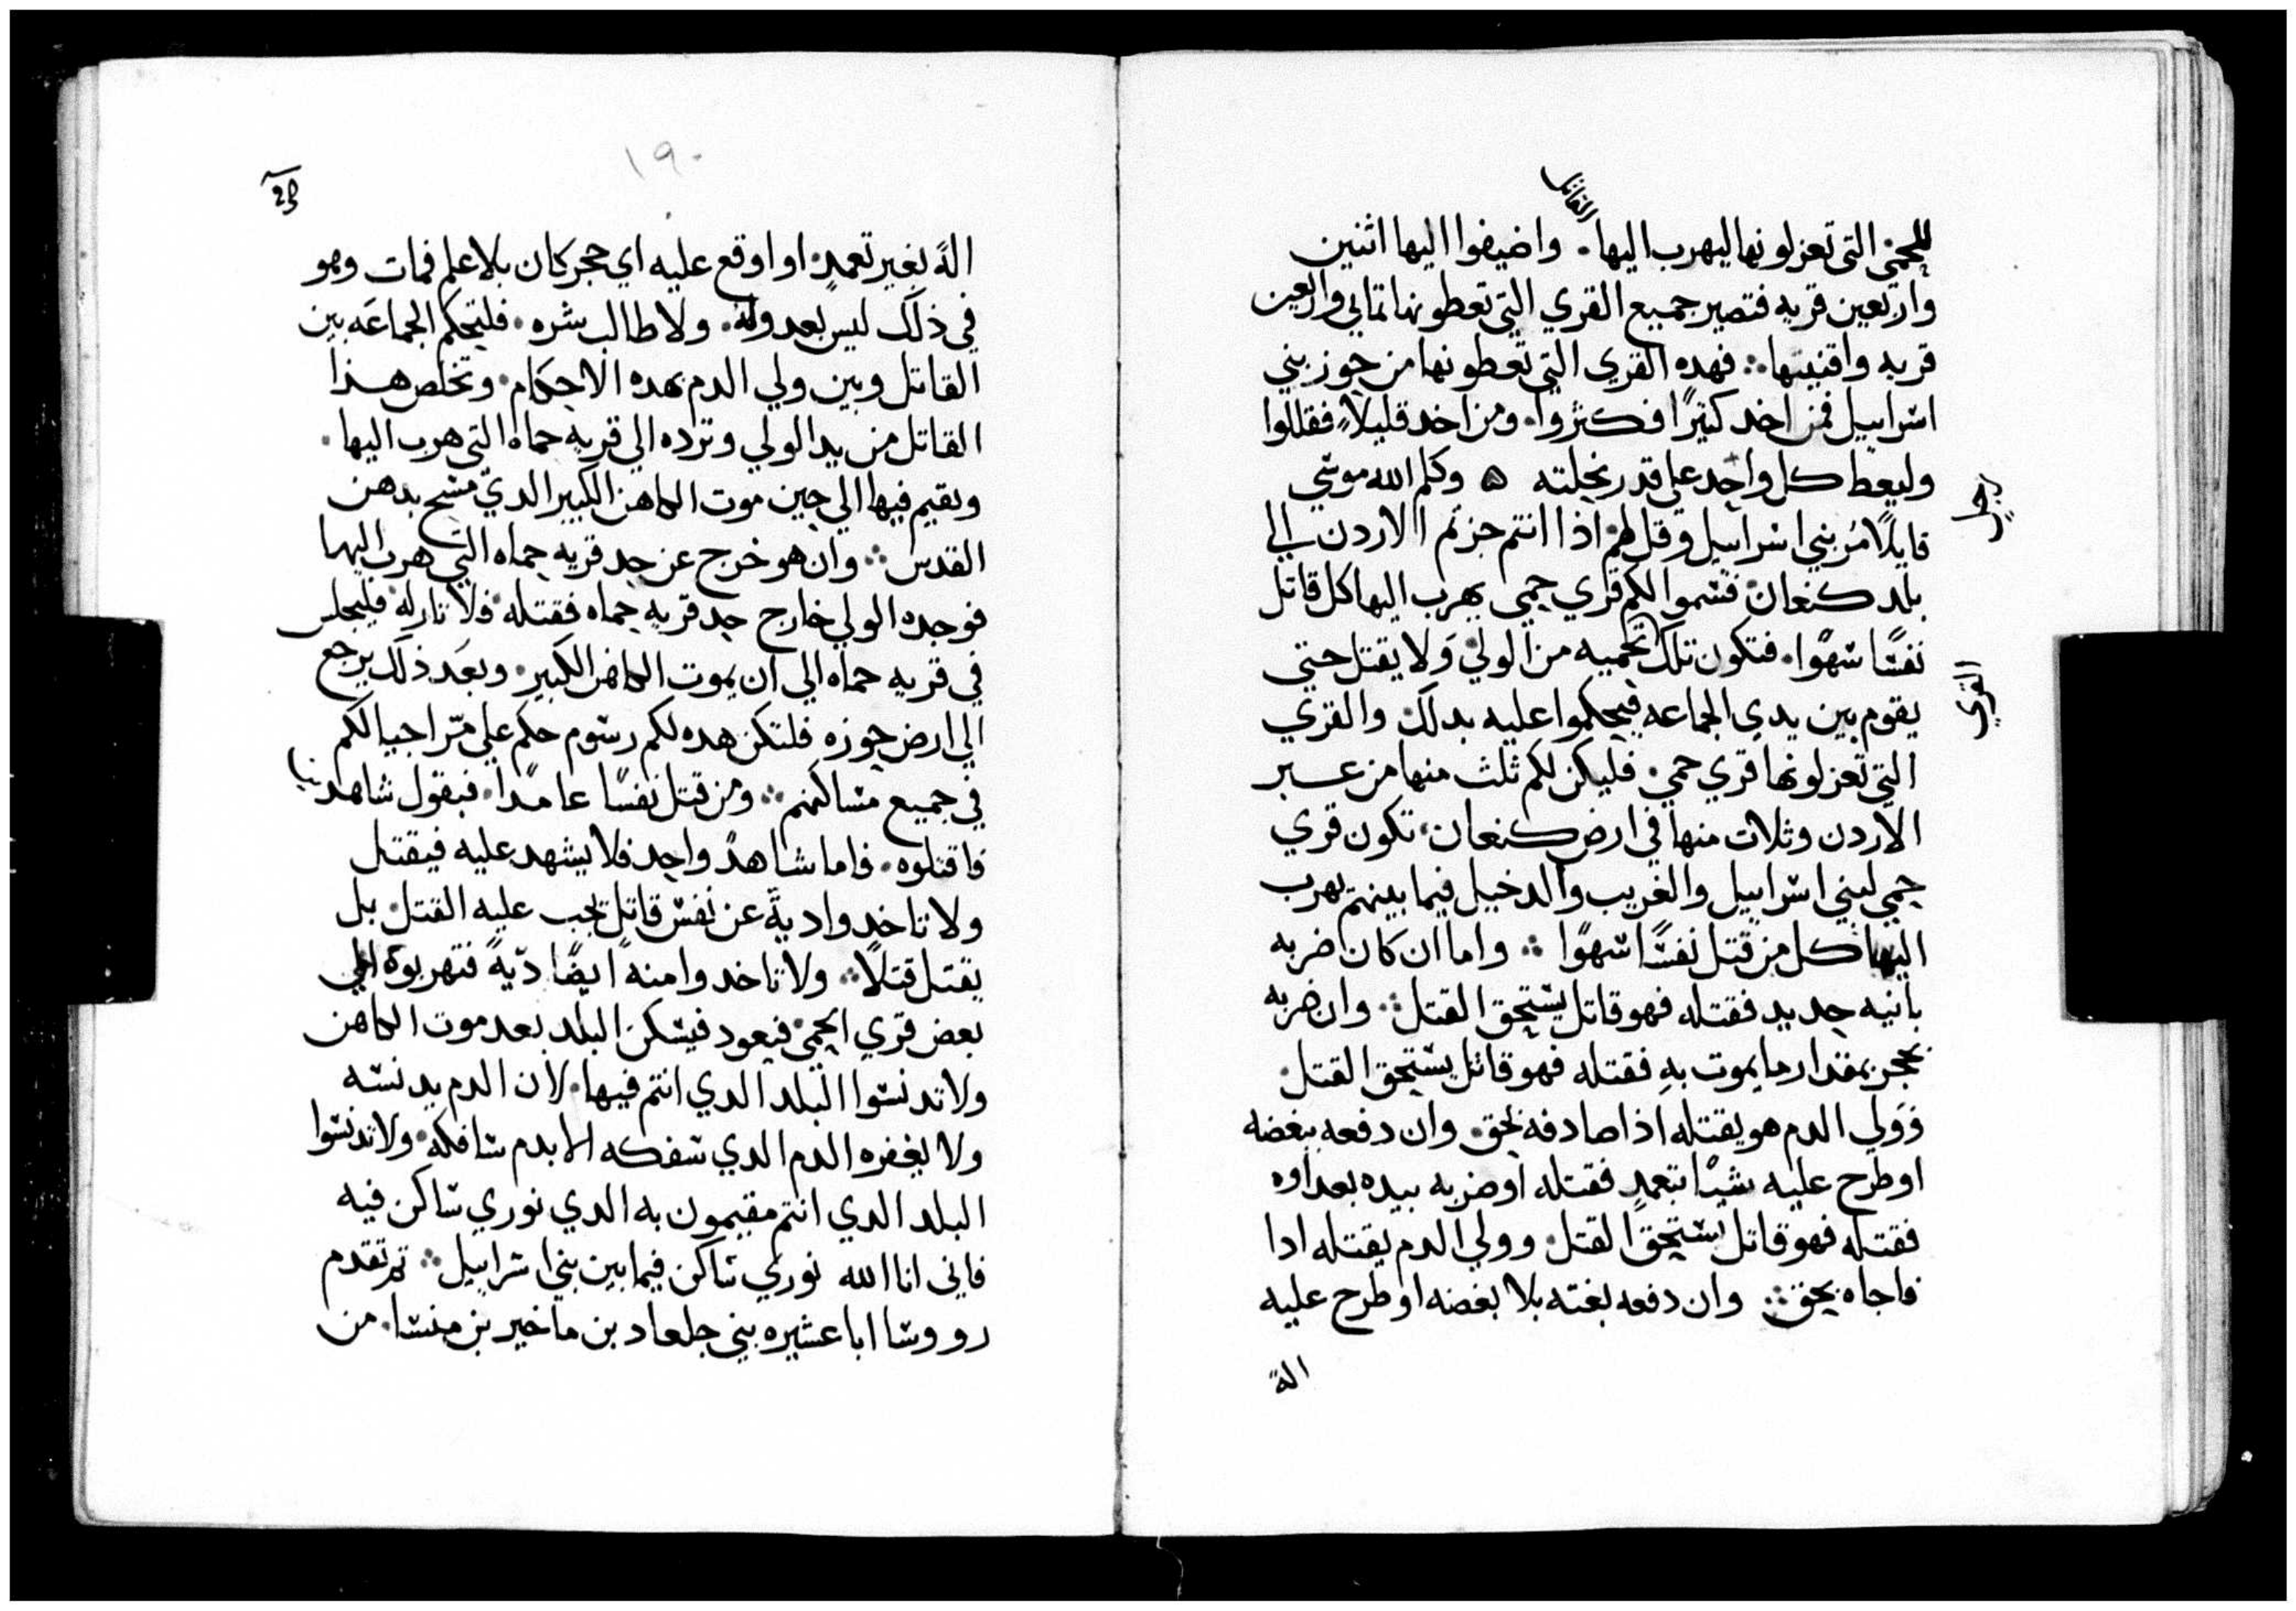 للحمي التي تعزلونها ليهرب اليها القاتل. واضيفوا اليها اثنين
واربعين قريه فتصير جميع القري التي تعطونها تماني واربعين
قريه واقنيتها ∴ فهده القري التي تعطونها من حوز بني
اسراييل فمن اخد كتيرًا فكثروا. ومن اخد قليلاً فقللوا
وليعط كل واحد علي قدر نحلته ه وكلم الله موسي
قايلاً مُر بني اسراييل وقل لهم اذا انتم جزتم الاردن الي
بلد كنعان فسموا لكم قري حمي يهرب اليها كل قاتل
نفسًا سهوًا. فتكون تلك تحميه من الولي ولا يقتل حتي
القري
يقوم بين يدي الجماعه فيحكموا عليه بدلك والقري
التي تعزلونها قري حمي. فليكن لكم ثلث منها من عبر
الاردن وثلاث منها في ارض كنعان تكون قري
حمي لبني اسراييل والغريب والدخيل فيما بينهم يهرب
اليها كل من قتل نفسًا سهوًا ∴ واما ان كان ضربه
بانيه حديد فقتله فهو قاتل يستحق القتل ∴ وان ضربه
بحجر بمقدار ما يموت به فقتله فهو قاتل يستحق القتل
فولي الدم هو يقتله اذا صادفه بحق. وان دفعه ببغضه
او طرح عليه شيًا بتعمدٍ فقتله او ضربه بيده بعداوه
فقتله فهو قاتل يستحق القتل وولي الدم يقتله ادا
فاجاه بحق ∴ وان دفعه بغته بلا بغضه او طرح عليه
الةً
١٩٠
الةً بغير تعمدٍ او اوقع عليه اي حجر كان بلا علم فمات وهو
في ذلك ليس بعدو له. ولا طالب شره. فليحكم الجماعه بين
القاتل وبين ولي الدم بهده الاحكام. وتخلص هذا
القاتل من يد الولي وترده الي قريه حماه التي هرب اليها.
ويقيم فيها الي حين موت الكاهن الكبير الدي مسح بدهن
القدس ∴ وان هو خرج عن حد قريه حماه التي هرب اليها
فوجده الولي خارج حد قريه حماه فقتله فلا تار له فليجلس
في قريه حماه الي ان يموت الكاهن الكبير. وبعد ذلك يرجع
الي ارض حوزه فلتكن هده لكم رسوم حكم علي مرّ اجيالكم
في جميع مساكنكم ∴ ومن قتل نفسًا عامدًا. فبقول شاهدين
فاقتلوه. فاما شاهدٌ واحد فلا يشهد عليه فيقتل
ولا تاخدوا ديةً عن نفس قاتل يجب عليه القتل بل
يقتل قتلاً ∴ ولا تاخدوا منه ايضًا ديّةً فتهربوه الي
بعض قري الحمي فيعود فيسكن البلد بعد موت الكاهن
ولا تدنسوا البلد الدي انتم فيها. لان الدم يدنسه
ولا يغفره الدم الدي سفكه الا بدم سافكه. ولا تدنسوا
البلد الدي انتم مقيمون به الدي نوري ساكن فيه
فاني انا الله نوري ساكن فيما بين بني اسراييل ∴ تم تقدم
رووسا ابا عشيره بني جلعاد بن ماخير بن منسا. من